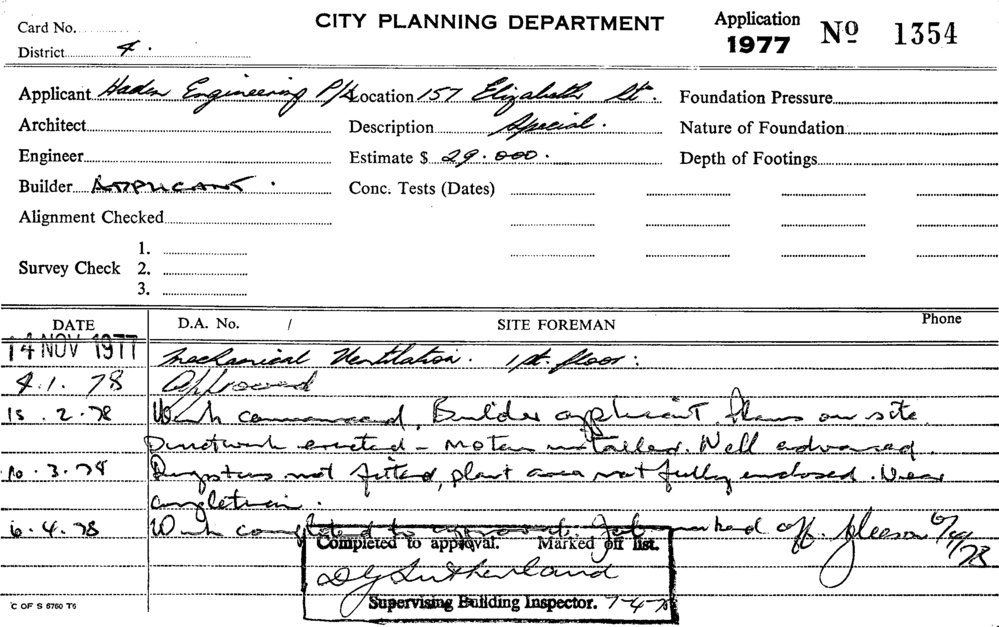 CITY PLANNING DEPARTMENT
Card No.
District 4.
Application
1977 Nº 1354
Applicant Haden Engineering P/L Location 157 Elizabeth St. Foundation Pressure
Architect Description Special. Nature of Foundation
Engineer Estimate $ 29.000. Depth of Footings
Builder APPLICANT. Conc. Tests (Dates)
Alignment Checked
1.
Survey Check 2.
3.
DATE D.A. No. / SITE FOREMAN Phone
14 NOV 1977 Mechanical Ventilation. 1st. floor.
4.1.78 Approved
15.2.78 Work commenced, Builder applicant. Plans on site.
Ductwork erected - motors installed. Well advanced.
10.3.78 not fitted, plant area not fully enclosed. Near
completion.
6.4.78 Work completed to approval. Job marked off. Gleeson 6/4/78
Completed to approval. Marked off list.
D G Sutherland
Supervising Building Inspector. 7-4-78
C OF S 6760 T6